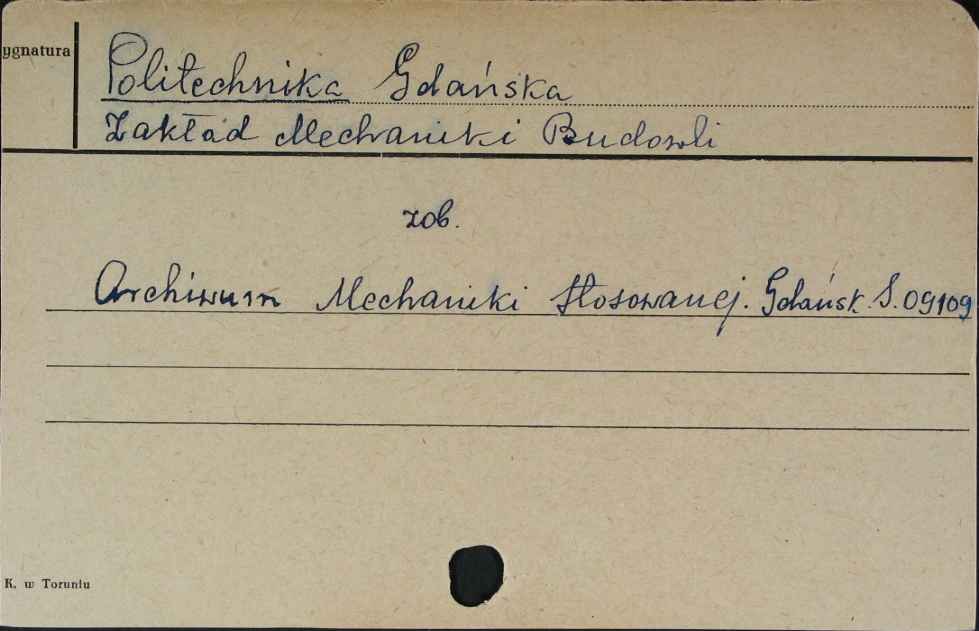 ygnatura
Politechnika Gdańska
Zakład Mechaniki Budowli
zob.
Archiwum Mechaniki Stosowanej. Gdańsk. S. 09109
K. w Toruniu